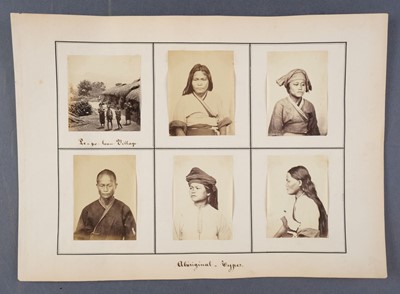 Pe-po-hoan Village
Aboriginal - Types.